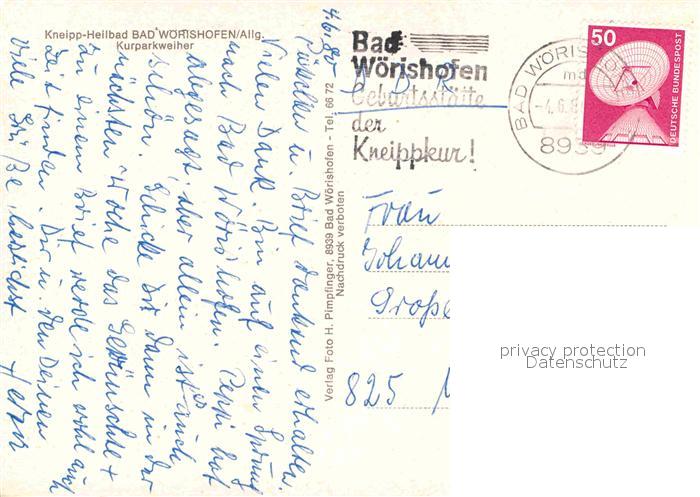 Kneipp-Heilbad BAD WÖRISHOFEN/Allg.
Kurparkweiher
4.6.80
Päckchen u. Brief dankend erhalten.
Vielen Dank. Bin auf einen Sprung
nach Bad Wörishofen. Peppi hat
abgesagt, aber allein ist es auch
schön. Schicke Dir dann in der
nächsten Woche das Gewünschte +
zu einem Brief werde ich wohl auch
Zeit finden. Dir u. den Deinen
viele Grüße herzlichst
Verlag Foto H. Pimpfinger, 8939 Bad Wörishofen - Tel. 66 72
Nachdruck verboten
Bad
Wörishofen
Geburtsstätte
der
Kneippkur!
BAD WÖRISHOFEN
-4.6.8
8939
50
DEUTSCHE BUNDESPOST
Frau
Johann
Große
825
privacy protection
Datenschutz